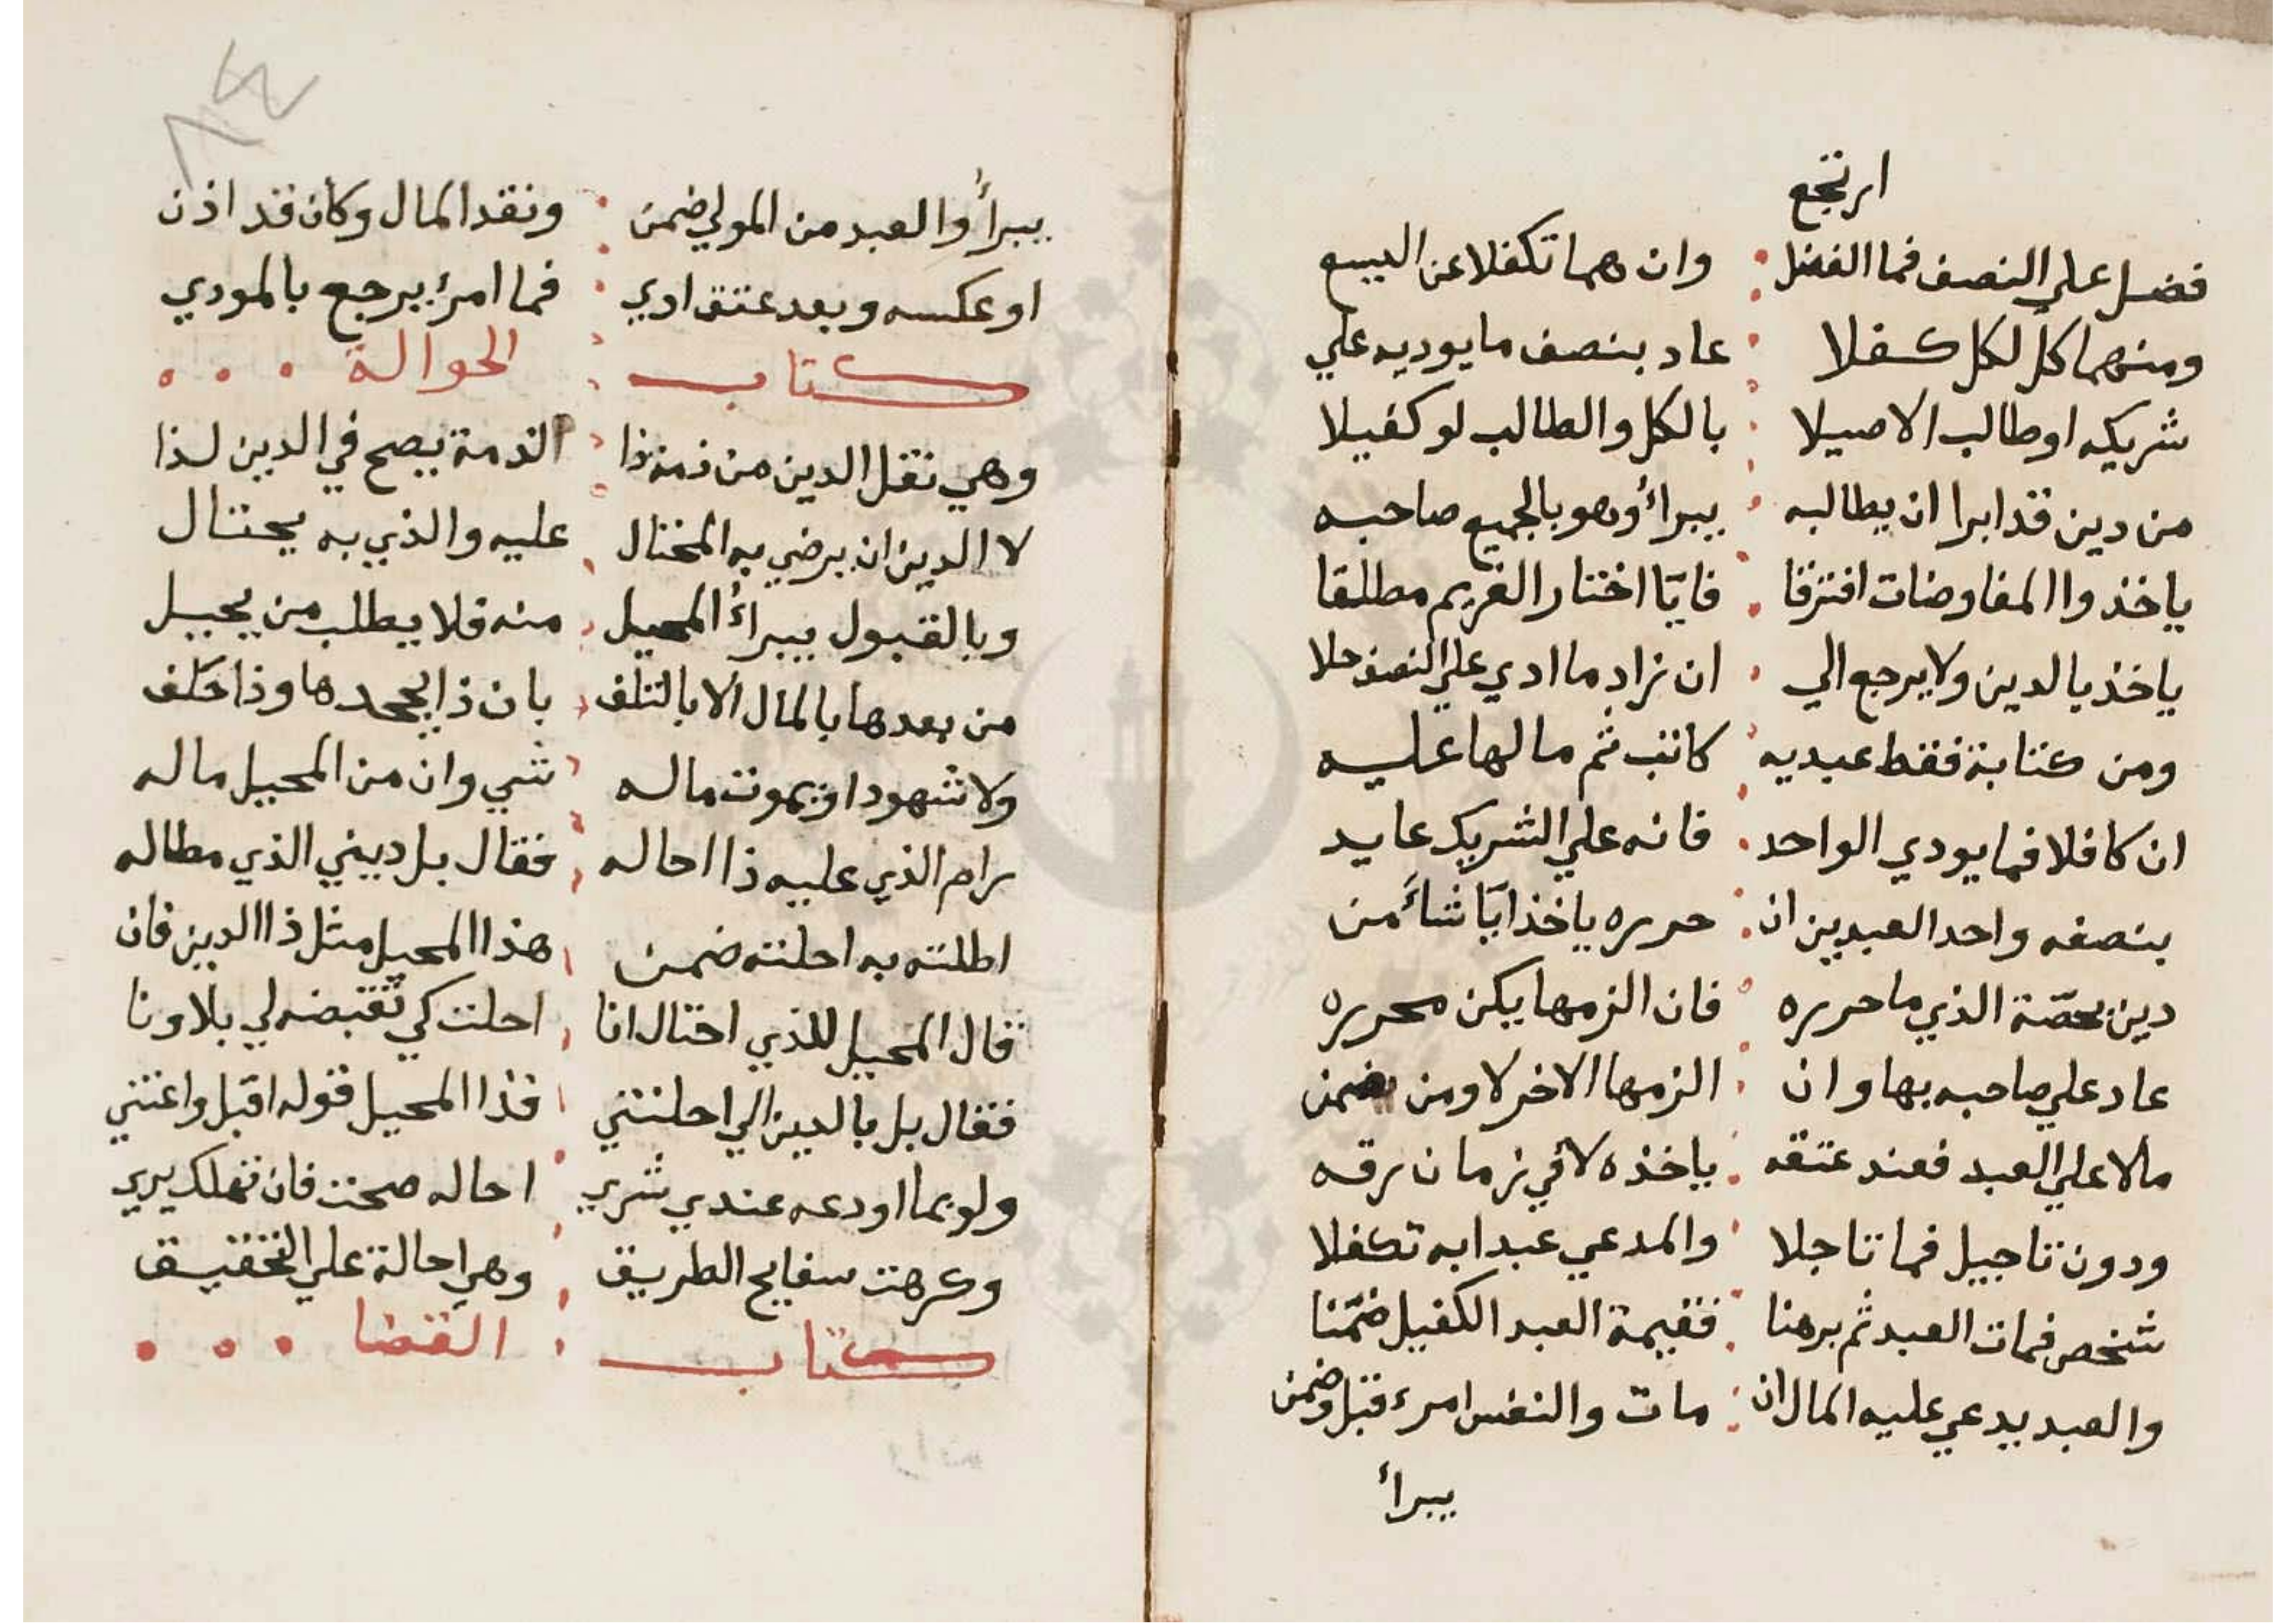 ارتجع
فضل علي النصف فما الفضل وان هما تكفلا عن البيع
ومنهما كل لكل كفلا عاد بنصف ما يوديه علي
شريكه او طالب الاصيلا بالكل والطالب لو كفيلا
من دين قد ابرا ان يطالبه يبرأ وهو بالجميع صاحبه
ياخذ والمفاوضات افترقا فايّا اختار الغريم مطلقا
ياخذ بالدين ولا يرجع الي ان زاد ما ادي علي النصف حلا
ومن كتابة فقط عبديه كاتب ثم ما لها عليه
ان كافلا فما يودي الواحد فانه علي الشريك عايد
بنصفه واحد العبدين ان حرره ياخذ ايّا شاء من
دين بحصّة الذي ما حرره فان الزمها يكن محرره
عاد علي صاحبه بها وان الزمها الاخر لا ومن يضمن
مالا علي العبد فعند عتقه ياخذه لا في زمان رقه
ودون تاجيل فما تاجلا والمدعي عبدا به تكفلا
شخص فمات العبد ثم برهنا فقيمة العبد الكفيل ضمّنا
والعبد يدعي عليه المال ان مات والنفس امرء قبل وضمن
يبرأ
يبرأ والعبد من المولي ضمن ونقد المال وكان قد اذن
او عكسه وبعد عتق ادي فما امرئ يرجع بالمودي
كتاب الحوالة
وهي نقل الدين من ذمة ذا الذمة يصح في الدين لذا
لا الدين ان يرضي به المحتال عليه والذي به يحتال
وبالقبول يبرأ المحيل منه فلا يطلب من يحيل
من بعدها بالمال الا بالتلف بان ذا يجحدها وذا حلف
ولا شهود او يموت ماله شي وان من المحيل ماله
رام الذي عليه ذا احاله فقال بل ديني الذي مطاله
اطلته به احلته ضمن هذا المحيل مثل ذا الدين فان
قال المحيل للذي احتال انا احلت كي تقبضه لي بلا ونا
فقال بل بالدين الي احلتني فذا المحيل قوله اقبل واعتني
ولو بما اودعه عندي شري احاله صحت فان تهلك يري
وكرهت سفايح الطريق وهي احالة علي التحقيق
كتاب القضا